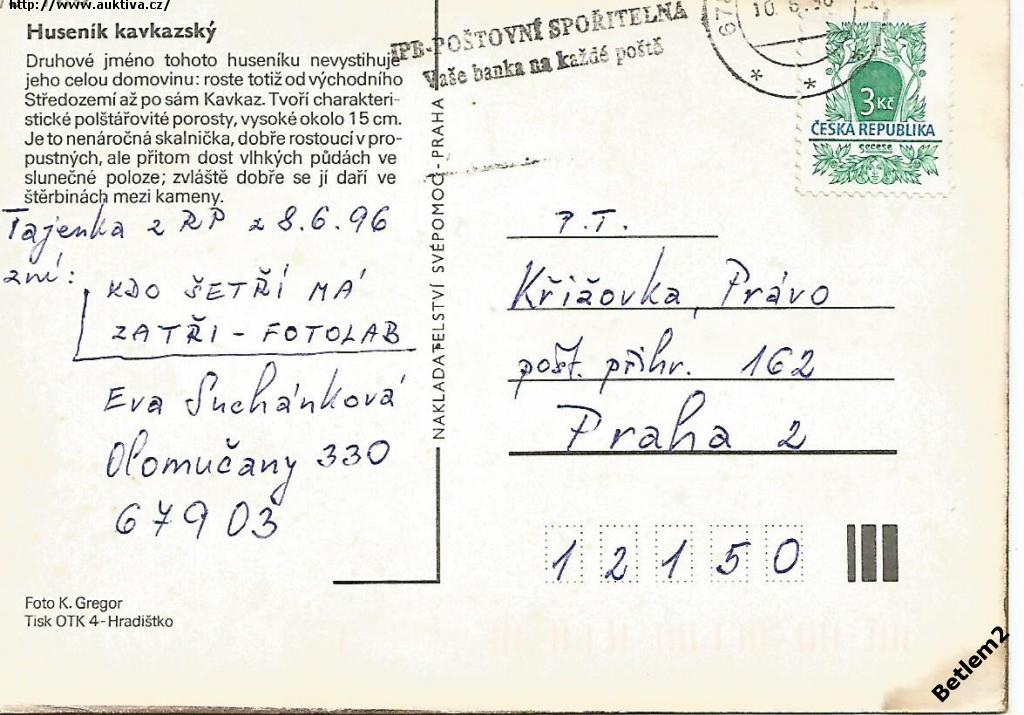 http://www.auktiva.cz/
Huseník kavkazský
Druhové jméno tohoto huseníku nevystihuje
jeho celou domovinu: roste totiž od východního
Středozemí až po sám Kavkaz. Tvoří charakteri-
stické polštářovité porosty, vysoké okolo 15 cm.
Je to nenáročná skalnička, dobře rostoucí v pro-
pustných, ale přitom dost vlhkých půdách ve
slunečné poloze; zvláště dobře se jí daří ve
štěrbinách mezi kameny.
Tajenka z RP z 8.6.96
zní:
KDO ŠETŘÍ MÁ
ZATŘI - FOTOLAB
Eva Suchánková
Olomučany 330
67903
Foto K. Gregor
Tisk OTK 4-Hradištko
NAKLADATELSTVÍ SVÉPOMOC - PRAHA
IPB-POŠTOVNÍ SPOŘITELNA
Vaše banka na každé poště
3 Kč
ČESKÁ REPUBLIKA
Secese
P.T.
Křížovka, Právo
pošt. přihr. 162
Praha 2
12150
Betlem2